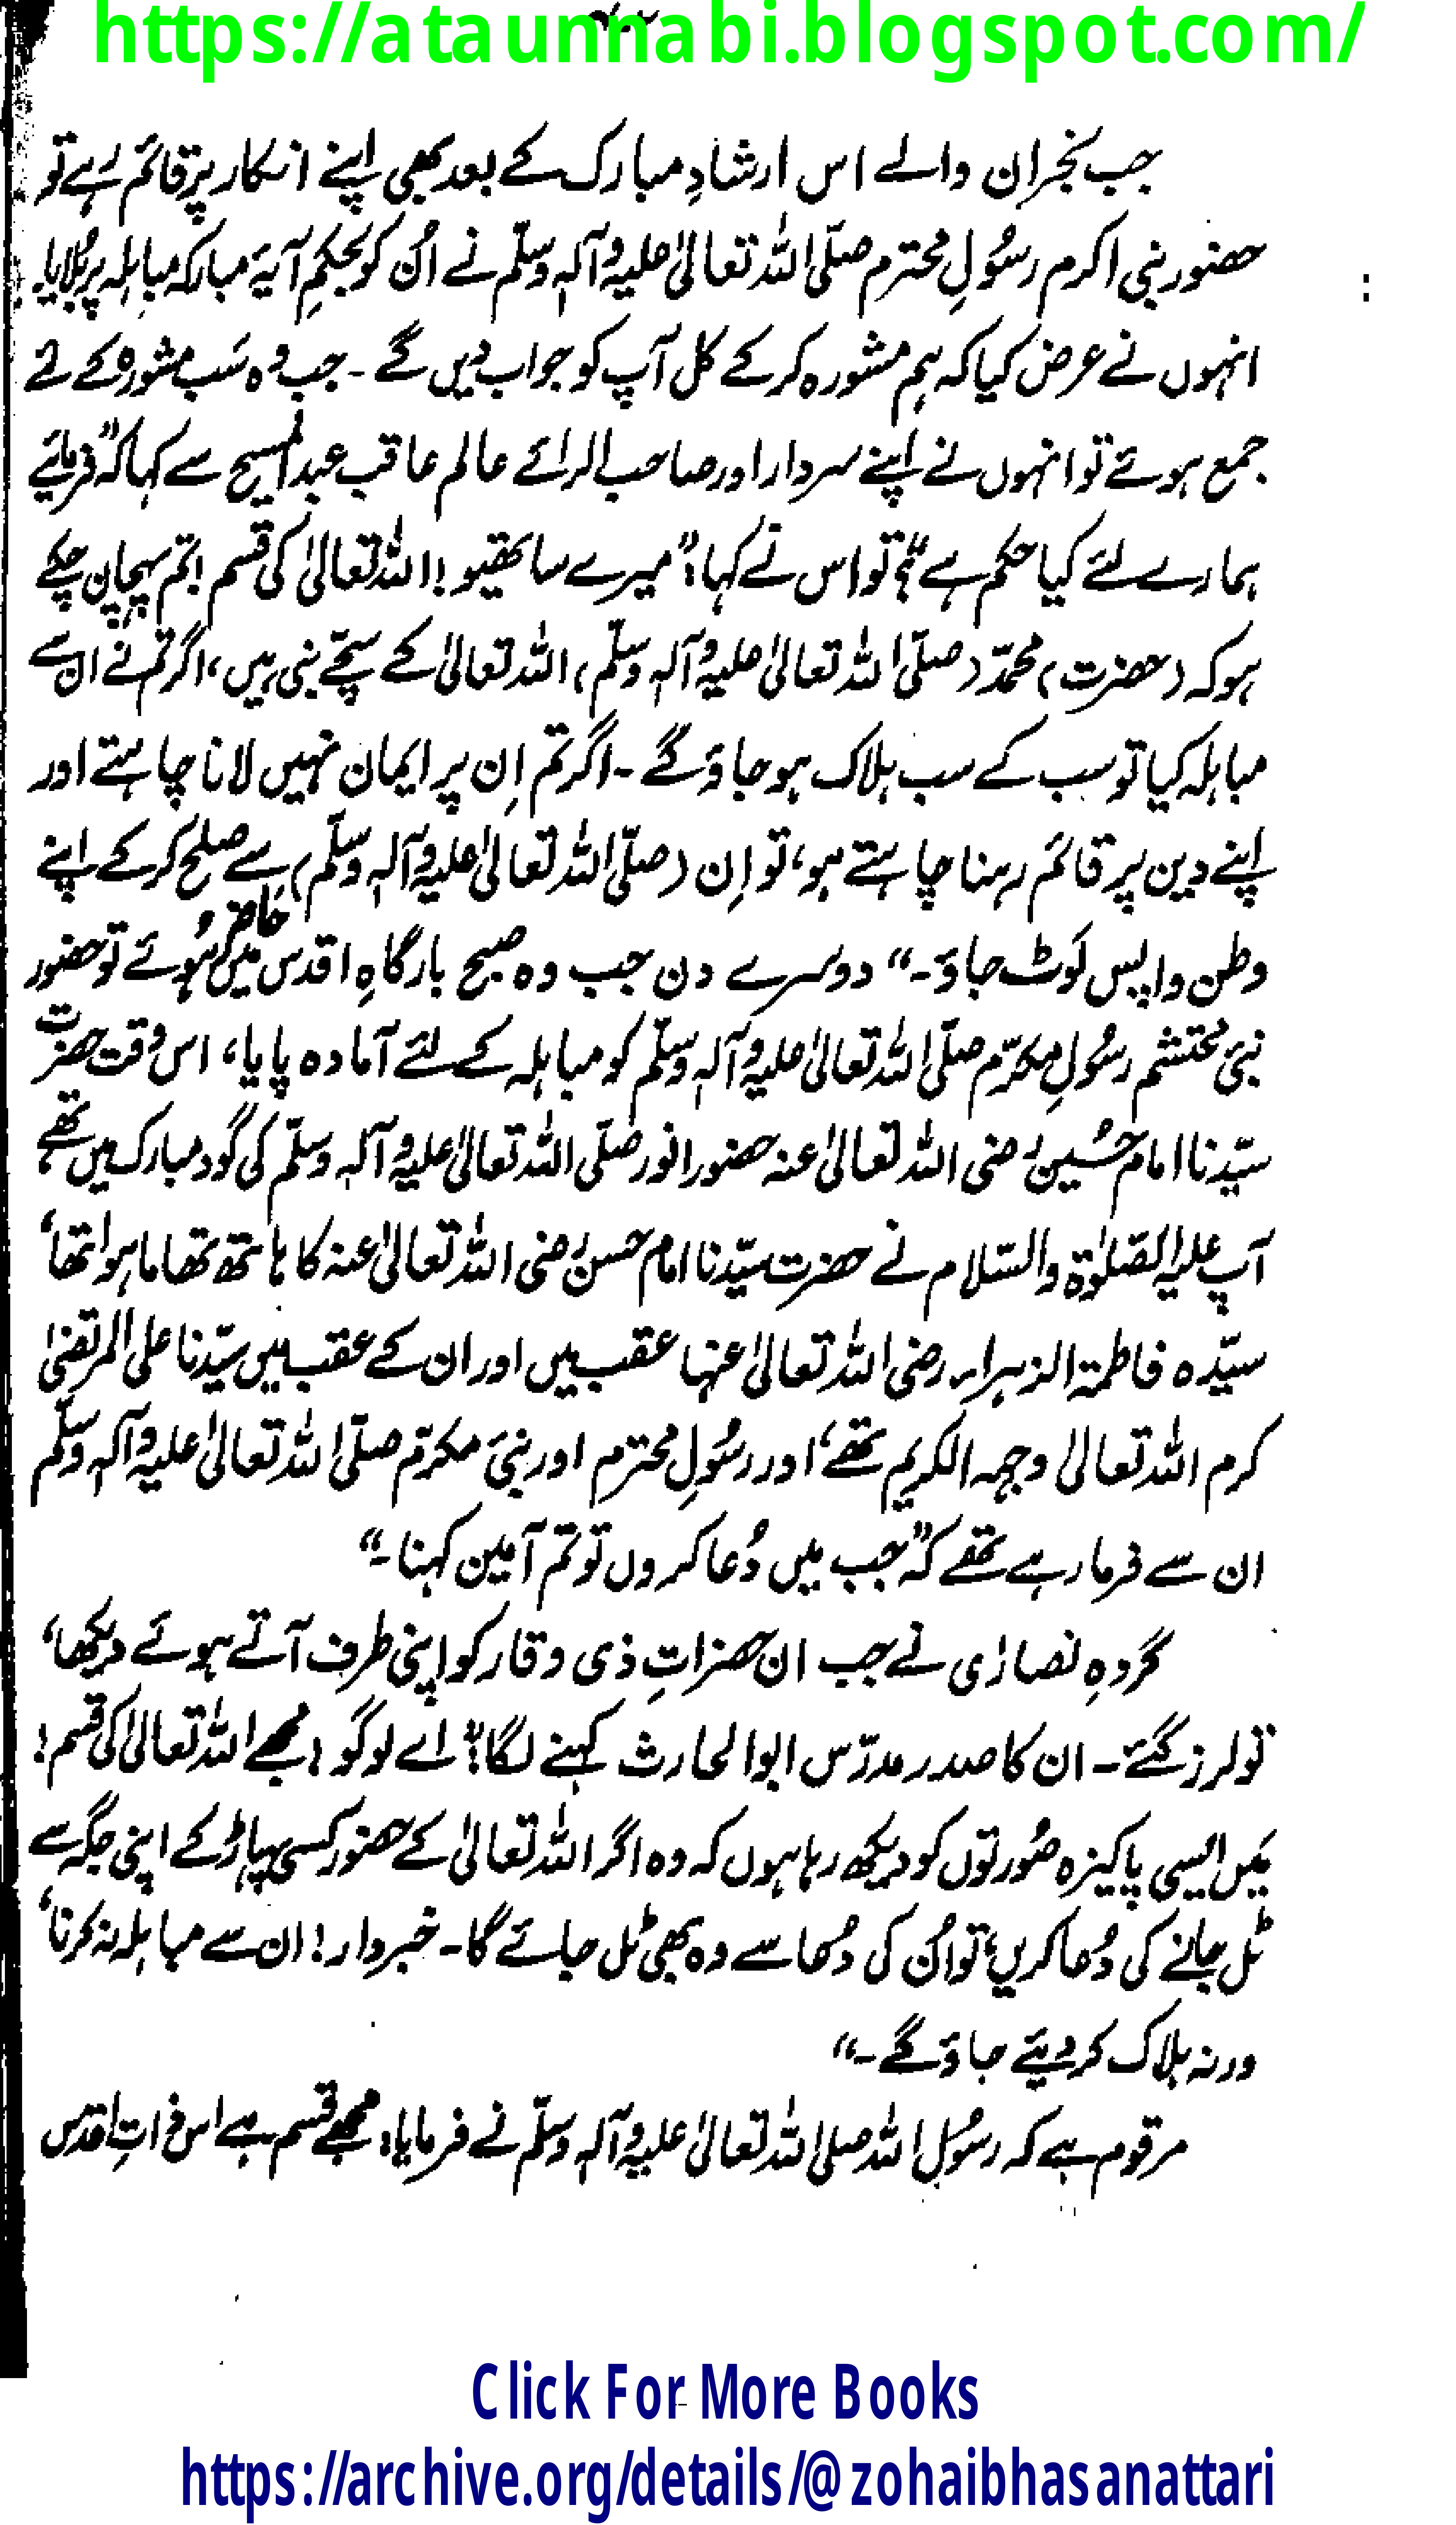 https://ataunnabi.blogspot.com/
جب نجران والے اس ارشادِ مبارک کے بعد بھی اپنے انکار پر قائم رہے تو
حضور نبی اکرم رسُولِ محترم صلّی اللہ تعالیٰ علیہ وآلہٖ وسلّم نے اُن کو بحکمِ آیۂ مبارکہ مباہلہ پر بُلایا۔
انہوں نے عرض کیا کہ ہم مشورہ کر کے کل آپ کو جواب دیں گے ۔ جب وہ سَب مشورہ کے لئے
جمع ہوئے تو انہوں نے اپنے سردار اور صاحب الرائے عالم عاقب عبدالمسیح سے کہا کہ "فرمائیے
ہمارے لئے کیا حکم ہے"؟ تو اس نے کہا: "میرے ساتھیو! اللہ تعالیٰ کی قسم! تم پہچان چکے
ہو کہ (حضرت) محمّد (صلّی اللہ تعالیٰ علیہ وآلہٖ وسلّم) اللہ تعالیٰ کے سچّے نبی ہیں، اگر تم نے ان سے
مباہلہ کیا تو سب کے سب ہلاک ہو جاؤ گے ۔ اگر تم اِن پر ایمان نہیں لانا چاہتے اور
اپنے دین پر قائم رہنا چاہتے ہو، تو اِن (صلّی اللہ تعالیٰ علیہ وآلہٖ وسلّم) سے صلح کر کے اپنے
وطن واپس لَوٹ جاؤ ۔" دوسرے دن جب وہ صبح بارگاہِ اقدس میں حاضر ہُوئے تو حضور
نبیِ محتشم رسُولِ مکرّم صلّی اللہ تعالیٰ علیہ وآلہٖ وسلّم کو مباہلہ کے لئے آمادہ پایا، اس وقت حضرت
سیّدنا امام حُسین رضی اللہ تعالیٰ عنہ حضور انور صلّی اللہ تعالیٰ علیہ وآلہٖ وسلّم کی گود مبارک میں تھے،
آپ علیہ الصّلوٰۃ والسّلام نے حضرت سیّدنا امام حسن رضی اللہ تعالیٰ عنہ کا ہاتھ تھاما ہوا تھا،
سیّدہ فاطمۃ الزہراء رضی اللہ تعالیٰ عنہا عقب میں اور ان کے عقب میں سیّدنا علی المرتضیٰ
کرم اللہ تعالیٰ وجہہ الکریم تھے، اور رسُولِ محترم اور نبیِ مکرّم صلّی اللہ تعالیٰ علیہ وآلہٖ وسلّم
ان سے فرما رہے تھے کہ "جب میں دُعا کروں تو تم آمین کہنا ۔"
گروہِ نصارٰی نے جب ان حضراتِ ذی وقار کو اپنی طرف آتے ہوئے دیکھا،
تو لرز گئے ۔ ان کا صدر مدرّس ابوالحارث کہنے لگا: "اے لوگو! مجھے اللہ تعالیٰ کی قسم!
مَیں ایسی پاکیزہ صُورتوں کو دیکھ رہا ہوں کہ وہ اگر اللہ تعالیٰ کے حضور کسی پہاڑ کے اپنی جگہ سے
ٹل جانے کی دُعا کریں، تو اُن کی دُعا سے وہ بھی ٹل جائے گا ۔ خبردار! ان سے مباہلہ نہ کرنا،
ورنہ ہلاک کر دیئے جاؤ گے ۔"
مرقوم ہے کہ رسُول اللہ صلی اللہ تعالیٰ علیہ وآلہٖ وسلّم نے فرمایا: مجھے قسم ہے اس ذاتِ اقدس
Click For More Books
https://archive.org/details/@zohaibhasanattari